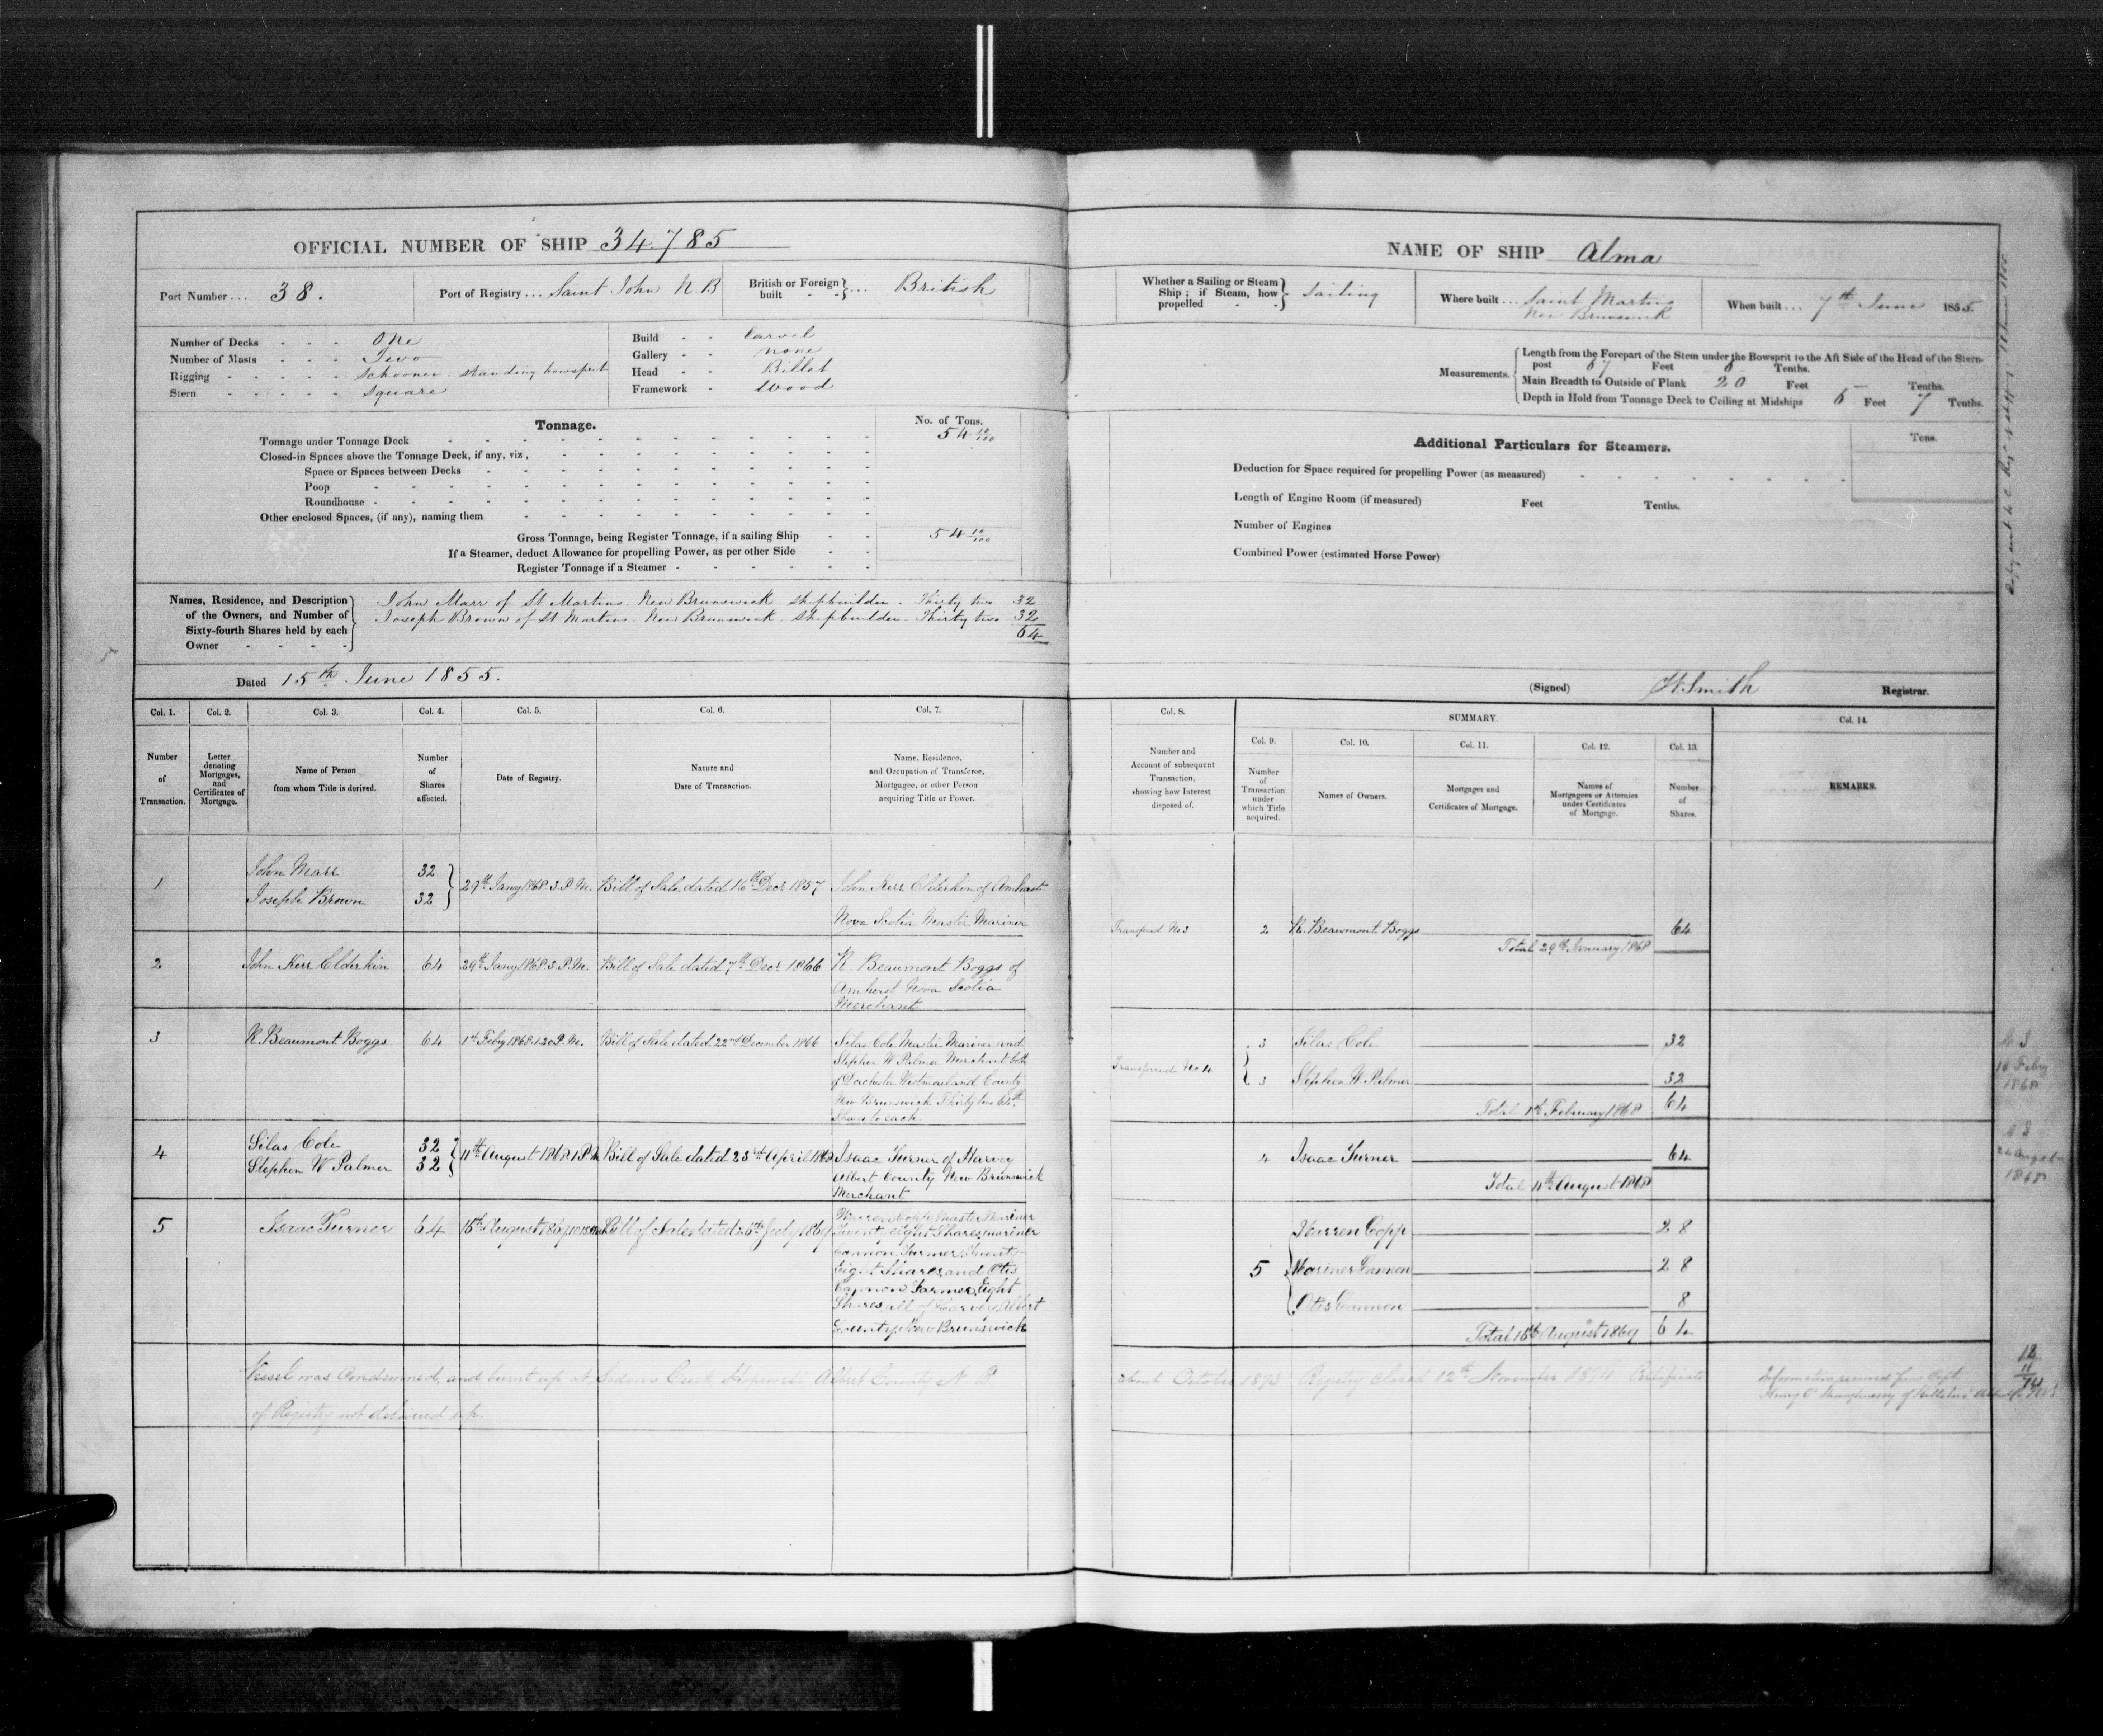 OFFICIAL NUMBER OF SHIP 34,785
Port Number ... 38.
Port of Registry ... Saint John N.B
British or Foreign built - - } ... British
Number of Decks - - - One
Number of Masts - - - Two
Rigging - - - - - Schooner. standing bowsprit
Stern - - - - - Square
Build - - Carvel
Gallery - - none
Head - - Billet
Framework - Wood
Tonnage.
No. of Tons.
Tonnage under Tonnage Deck 54 10/100
Closed-in Spaces above the Tonnage Deck, if any, viz.
Space or Spaces between Decks
Poop
Roundhouse
Other enclosed Spaces, (if any), naming them
Gross Tonnage, being Register Tonnage, if a sailing Ship - - 54 10/100
If a Steamer, deduct Allowance for propelling Power, as per other Side - -
Register Tonnage if a Steamer
Names, Residence, and Description of the Owners, and Number of Sixty-fourth Shares held by each Owner
John Marr of St Martins. New Brunswick shipbuilder. Thirty two 32
Joseph Brown of St Martins. New Brunswick. shipbuilder. Thirty two 32
64
Dated 15th June 1855.
Col. 1. Col. 2. Col. 3. Col. 4. Col. 5. Col. 6. Col. 7.
Number of Transaction.
Letter denoting Mortgages, and Certificates of Mortgage.
Name of Person from whom Title is derived.
Number of Shares affected.
Date of Registry.
Nature and Date of Transaction.
Name, Residence, and Occupation of Transferee, Mortgagee, or other Person acquiring Title or Power.
1
John Marr 32
Joseph Brown 32
29th Jany 1868. 3. P.M.
Bill of Sale dated 16th Decr 1857
John Kerr Elderkin of Amherst
Nova Scotia Master Mariner
2
John Kerr Elderkin 64
29th Jany 1868. 3. P.M.
Bill of Sale dated 7th Decr 1866
R. Beaumont Boggs of
Amherst Nova Scotia
Merchant
3
R. Beaumont Boggs 64
1st Feby 1868. 1.20 P.M.
Bill of Sale dated 22nd December 1866
Silas Cole Master Mariner and
Stephen W. Palmer Merchant both
of Dorchester Westmorland County
New Brunswick Thirty two 64th
Shares to each
4
Silas Cole 32
Stephen W Palmer 32
11th August 1868. 1 P.M
Bill of Sale dated 23rd April 1868
Isaac Turner of Harvey
Albert County New Brunswick
Merchant
5
Isaac Turner 64
16th August 1869
Bill of Sale dated 26th July 1869
Warren Copp Master Mariner
Twenty eight Shares, Mariner
Cannon, Farmer, Twenty
Eight Shares and Otis
Cannon Farmer, Eight
Shares all of Harvey Albert
County New Brunswick
Vessel was Condemned, and burnt up at Creek, Hopewell, Albert County N B
of Registry not delivered up.
NAME OF SHIP Alma
Whether a Sailing or Steam Ship; if Steam, how propelled - } Sailing
Where built ... Saint Martins
New Brunswick
When built ... 7th June 1855.
Measurements.
Length from the Forepart of the Stem under the Bowsprit to the Aft Side of the Head of the Stern-
post 67 Feet Tenths.
Main Breadth to Outside of Plank 20 Feet Tenths.
Depth in Hold from Tonnage Deck to Ceiling at Midships 6 Feet 7 Tenths.
Additional Particulars for Steamers.
Tons.
Deduction for Space required for propelling Power (as measured)
Length of Engine Room (if measured) Feet Tenths.
Number of Engines
Combined Power (estimated Horse Power)
(Signed) H. Smith Registrar.
Col. 8. SUMMARY. Col. 14.
Col. 9. Col. 10. Col. 11. Col. 12. Col. 13.
Number and Account of subsequent Transaction, showing how Interest disposed of.
Number of Transaction under which Title acquired.
Names of Owners.
Mortgages and Certificates of Mortgage.
Names of Mortgagees or Attornies under Certificates of Mortgage.
Number of Shares.
REMARKS.
Transfered No 3
2 R. Beaumont Boggs 64
Total 29th January 1868
Transferred No 4
3 Silas Cole 32
3 Stephen W. Palmer 32
Total 1st February 1868 64
4 Isaac Turner 64
Total 11th August 1868
5
Warren Copp 28
Mariner Cannon 28
Otis Cannon 8
Total 16th August 1869 64
about October 1873 Registry Closed 12th November 1874 Certificate
Information received from Capt.
Henry
Feby
1868
24 August
1868
12
11
74